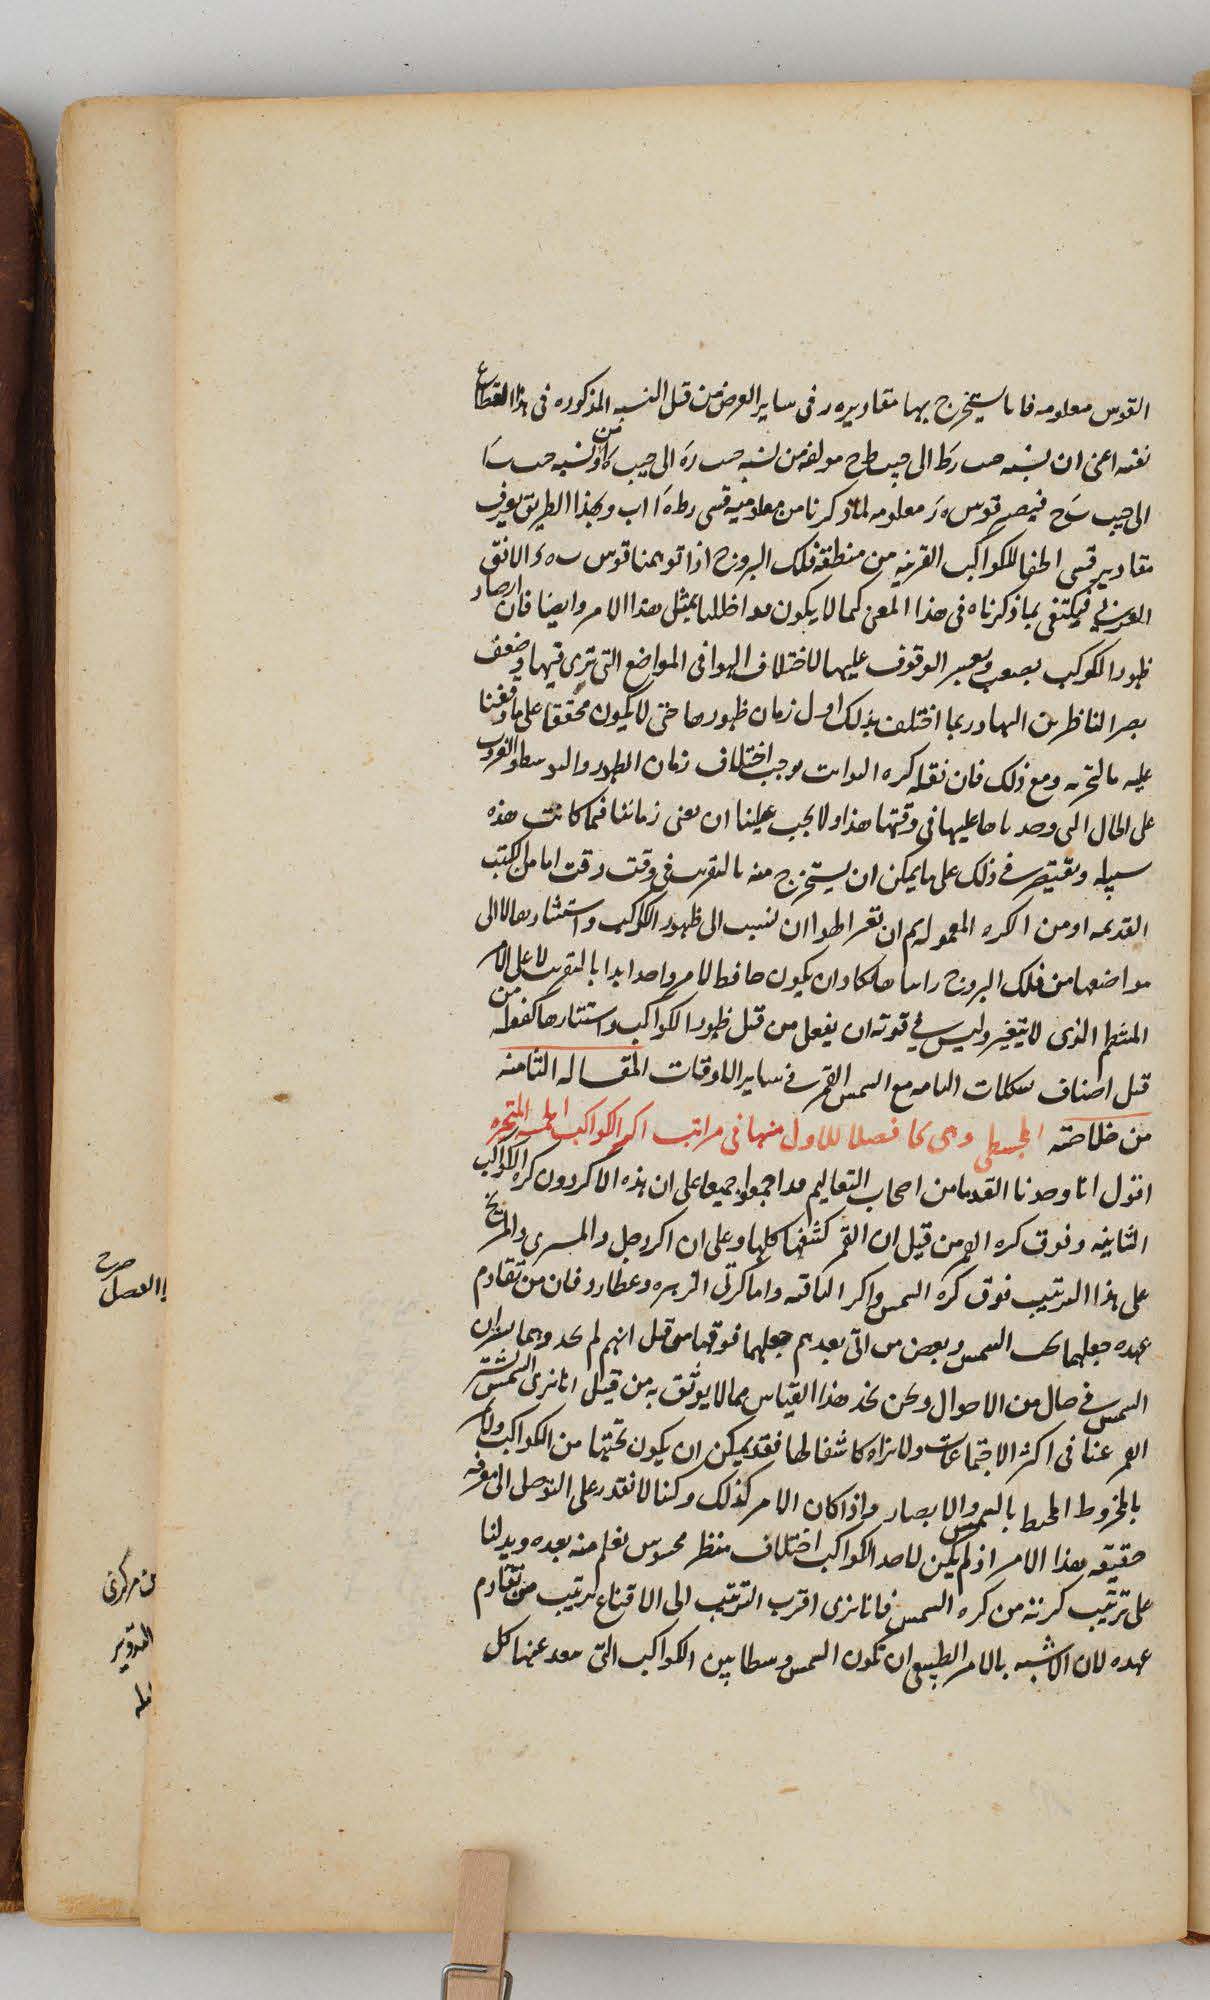 القوس معلومه فانا يستخرج بها مقادير ه ر فى ساير العرض من قبل النسبه المذكوره فى هذا القطاع
نفسه اعنى ان نسبه جيب رط الى جيب طح مولفه من نسبه جيب ره الى جيب ه ا ومن نسبه جيب
الى جيب فيصير قوس ه ر معلومه لما ذكرنا من معلوميه قسى رط ه ا اب وبهذا الطريق يعرف
مقادير قسى اخفا للكواكب القريبه من منطقه فلك البروج اذا توهمنا قوس ب ه د الافق
الغربى فيكتفى بما ذكرناه فى هذا المعنى كما لا يكون مواظبا بمثل هذا الامر وايضا فان ارصاد
ظهور الكوكب يصعب ويعسر الوقوف عليها لاختلاف الهوا فى المواضع التى ترى فيها وضعف
بصر الناظرين اليها وربما اختلف بذلك اول زمان ظهورها حتى لا يكون محققا على ما وقفنا
عليه بالتجربه ومع ذلك فان نقله كره الثوابت يوجب اختلاف زمان الطلوع والتوسط والغروب
على الحال التى وجدناها عليها فى وقتها هذا ولا يجب علينا ان نعنى زماننا فيما كانت هذه
سبيله ونقتصر فى ذلك على ما يمكن ان يستخرج منه بالتقريب فى وقت وقت اما من الكتب
القديمه او من الكره المعموله ثم ان تغيرات الهوا ان نسبت الى ظهور الكوكب واستتارها لا الى
مواضعها من فلك البروج راينا ها تكاد ان يكون حافظا لامر واحد ابدا بالتقريب لا على الامر
المنتظم الذى لا يتغير وليس فى قوته ان يفعل من قبل ظهور الكواكب واستتارها كفعله من
قبل اصناف تشكلات التامه مع الشمس القمر فى ساير الاوقات المقاله الثامنه
من خلاصه المجسطى وهى كا فصلا الاول منها فى مراتب اكر الكواكب الخمسه المتحيره
اقول انا وجدنا القدما من اصحاب التعاليم قد اجمعوا جميعا على ان هذه الاكر دون كره الكواكب
الثابته وفوق كره القمر من قبل ان القمر كشفها كلها وعلى ان اكر زحل والمشترى والمريخ
على هذا الترتيب فوق كره الشمس واكر الباقيه واما كرتى الزهره وعطارد فان من تقادم
عهده جعلهما تحت الشمس وبعض من اتى بعدهم جعلهما فوقها من قبل انهم لم يجدوهما يستران
الشمس فى حال من الاحوال ونحن نجد هذا القياس مما لا يوثق به من قبل انا نرى الشمس تستر
القمر عنا فى اكثر الاجتماعات ولا نراه كاشفا لها فقد يمكن ان يكون تحتها من الكواكب ولا تمر
بالمخروط المحيط بالشمس والابصار واذا كان الامر كذلك وكنا لا نقدر على التوصل الى معرفه
حقيقه هذا الامر اذ لم يكن لاحد الكواكب اختلاف منظر محسوس نعلم منه بعده ويدلنا
على ترتيب كرته من كره الشمس فانا نرى اقرب الترتيب الى الاقناع ترتيب من تقادم
عهده لان الاشبه بالامر الطبيعى ان تكون الشمس وسطا بين الكواكب التى تبعد عنها كل
االفصل صح
من مركزى
التدوير